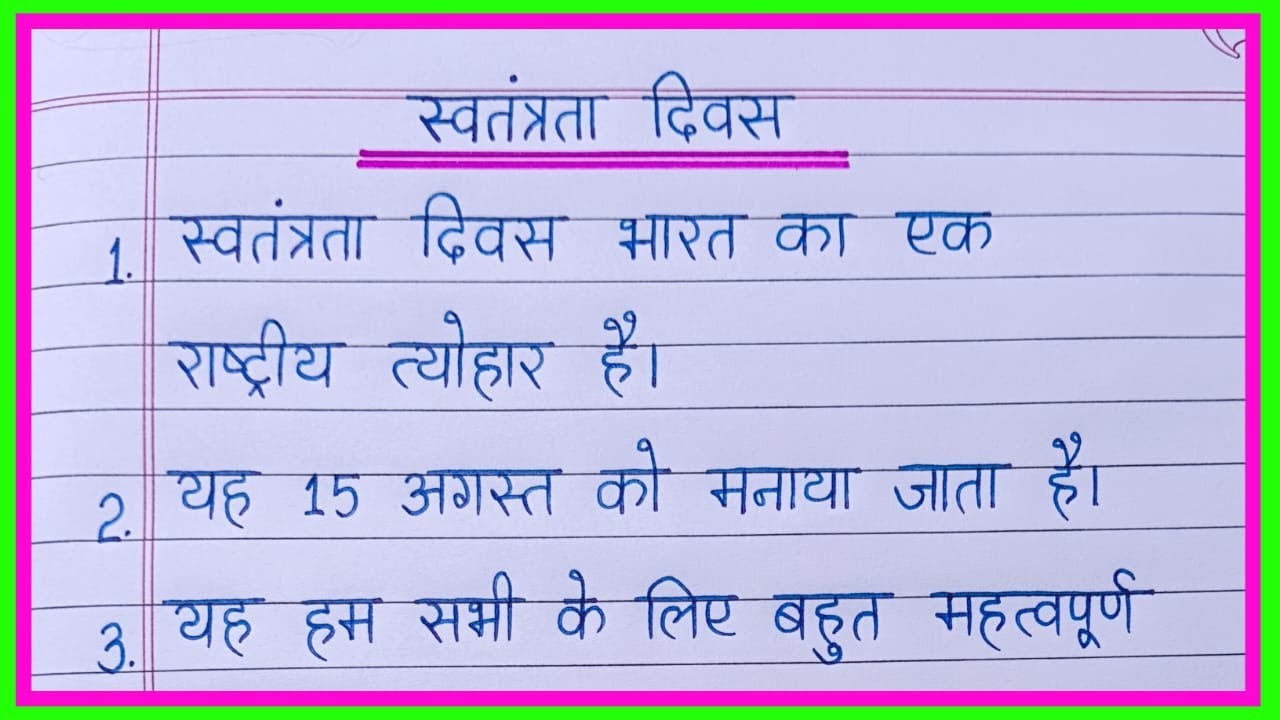 स्वतंत्रता दिवस
1. स्वतंत्रता दिवस भारत का एक
राष्ट्रीय त्योहार है।
2. यह 15 अगस्त को मनाया जाता है।
3. यह हम सभी के लिए बहुत महत्वपूर्ण